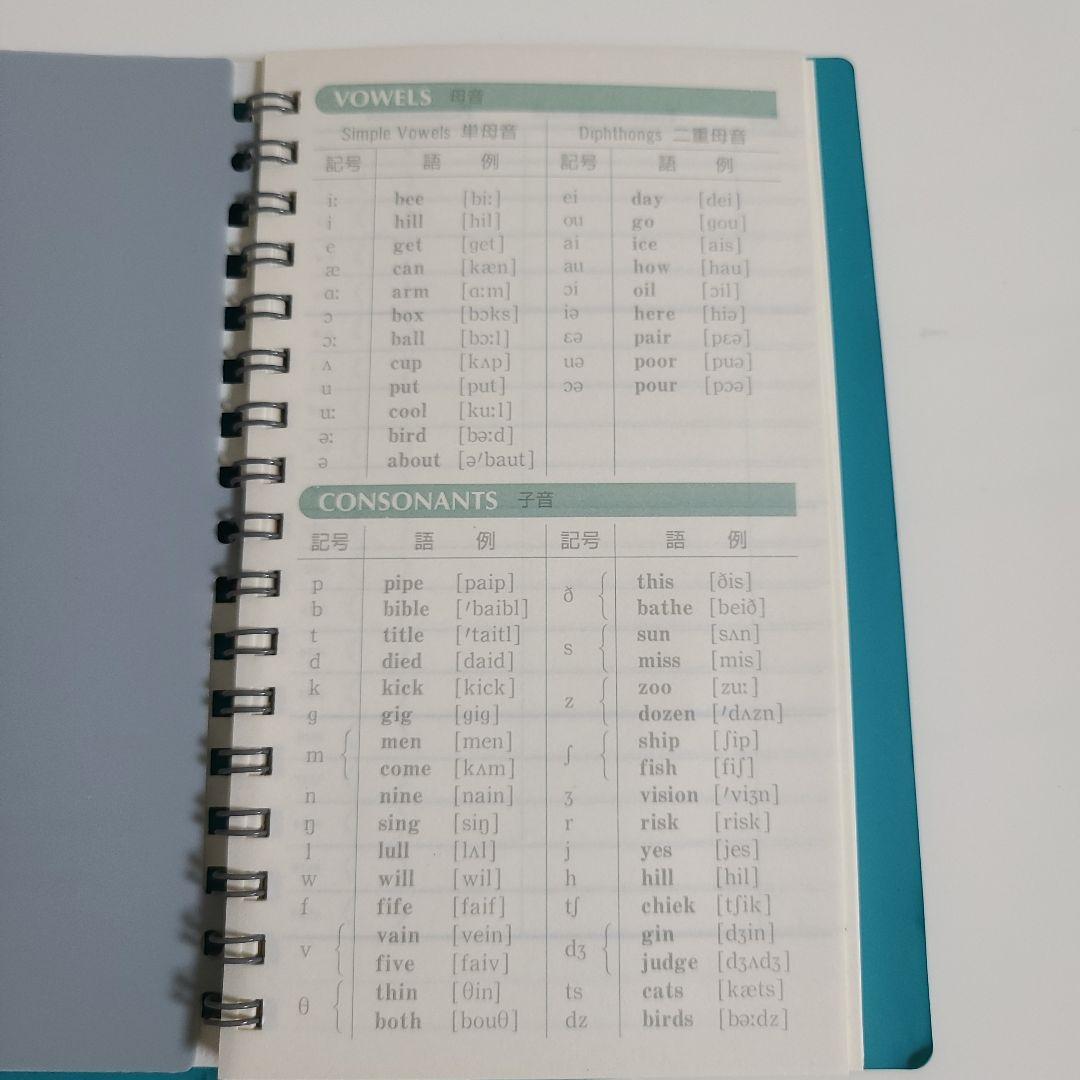 VOWELS 母音
Simple Vowels 単母音 Diphthongs 二重母音
記号 語 例 記号 語 例
i: bee [bi:] ei day [dei]
i hill [hil] ou go [gou]
e get [get] ai ice [ais]
æ can [kæn] au how [hau]
ɑ: arm [ɑ:m] ɔi oil [ɔil]
ɔ box [bɔks] iə here [hiə]
ɔ: ball [bɔ:l] ɛə pair [pɛə]
ʌ cup [kʌp] uə poor [puə]
u put [put] ɔə pour [pɔə]
u: cool [ku:l]
ə: bird [bə:d]
ə about [ə'baut]
CONSONANTS 子音
記号 語 例 記号 語 例
p pipe [paip] ð this [ðis]
b bible ['baibl] bathe [beið]
t title ['taitl] s sun [sʌn]
d died [daid] miss [mis]
k kick [kick] z zoo [zu:]
g gig [gig] dozen ['dʌzn]
m men [men] ʃ ship [ʃip]
come [kʌm] fish [fiʃ]
n nine [nain] ʒ vision ['viʒn]
ŋ sing [siŋ] r risk [risk]
l lull [lʌl] j yes [jes]
w will [wil] h hill [hil]
f fife [faif] tʃ chiek [tʃik]
v vain [vein] dʒ gin [dʒin]
five [faiv] judge [dʒʌdʒ]
θ thin [θin] ts cats [kæts]
both [bouθ] dz birds [bə:dz]